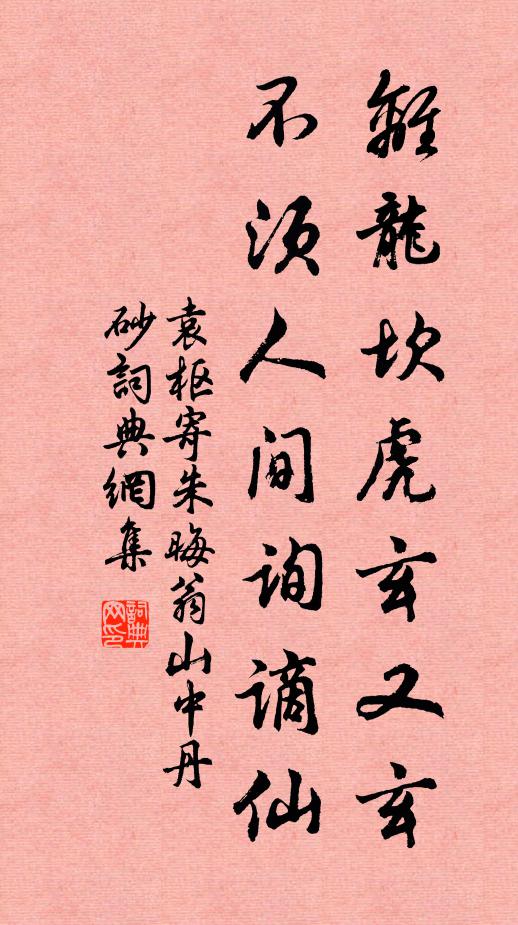 離龍坎虎玄又玄
不須人间詢謫仙
袁枢寄朱晦翁山中丹
砂詞典網集
詞典網印